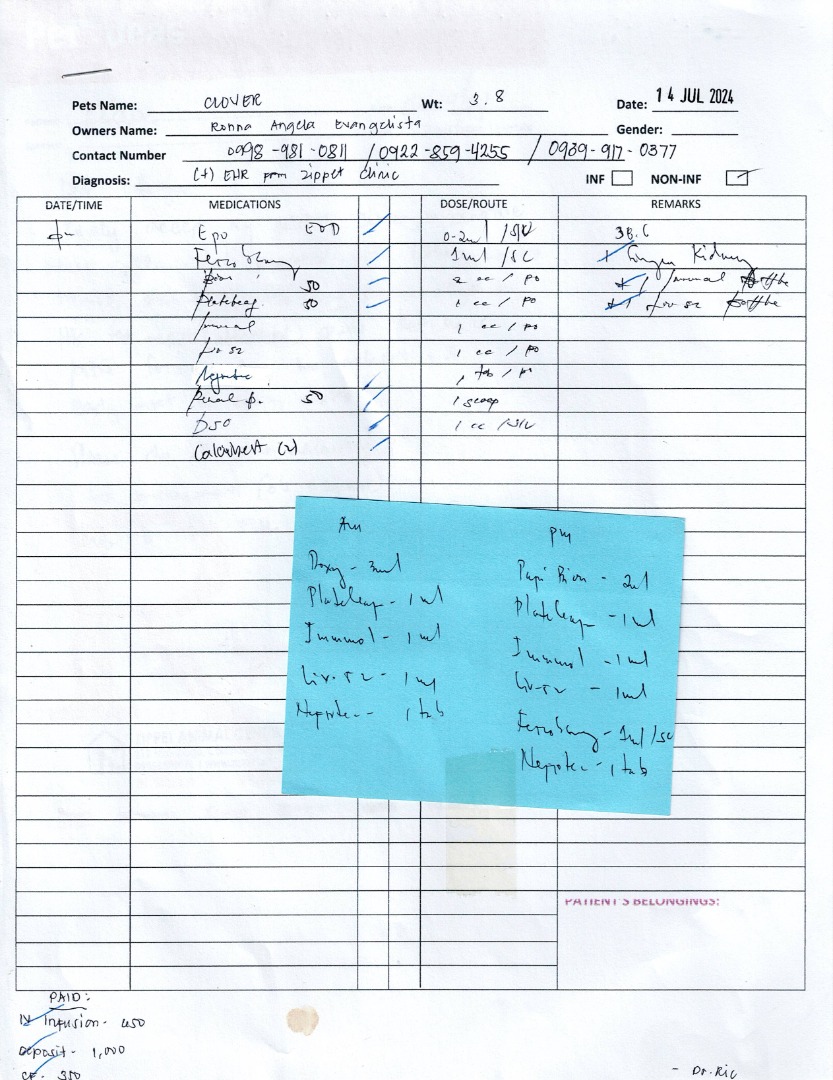 Pets Name: CLOVER Wt: 3.8 Date: 14 JUL 2024
Owners Name: Ronna Angela Evangelista Gender:
Contact Number 0998-981-0811 / 0922-859-4255 / 0939-917-0377
Diagnosis: (+) EHR from Zippet Clinic INF NON-INF
DATE/TIME MEDICATIONS DOSE/ROUTE REMARKS
Epo EOD 0.2ml
1ml /SC Kidney
50 2 cc / po
Plateleap. 50 1 cc / po
1 cc / po
1 cc / po
1 tab / po
Renal p. 50 1 scoop
D50 1 cc
(2)
Am
Doxy - 3ml
Plateleap - 1 ml
Immunol - 1 ml
Liv-52 - 1 ml
1 tab
pm
Papi Bion - 2ml
Plateleap - 1 ml
Immunol - 1 ml
Liv-52 - 1ml
1ml /SC
1 tab
PATIENT'S BELONGINGS:
PAID:
IV Infusion - 450
Deposit - 1,000
CF - 350
- Dr. Ric